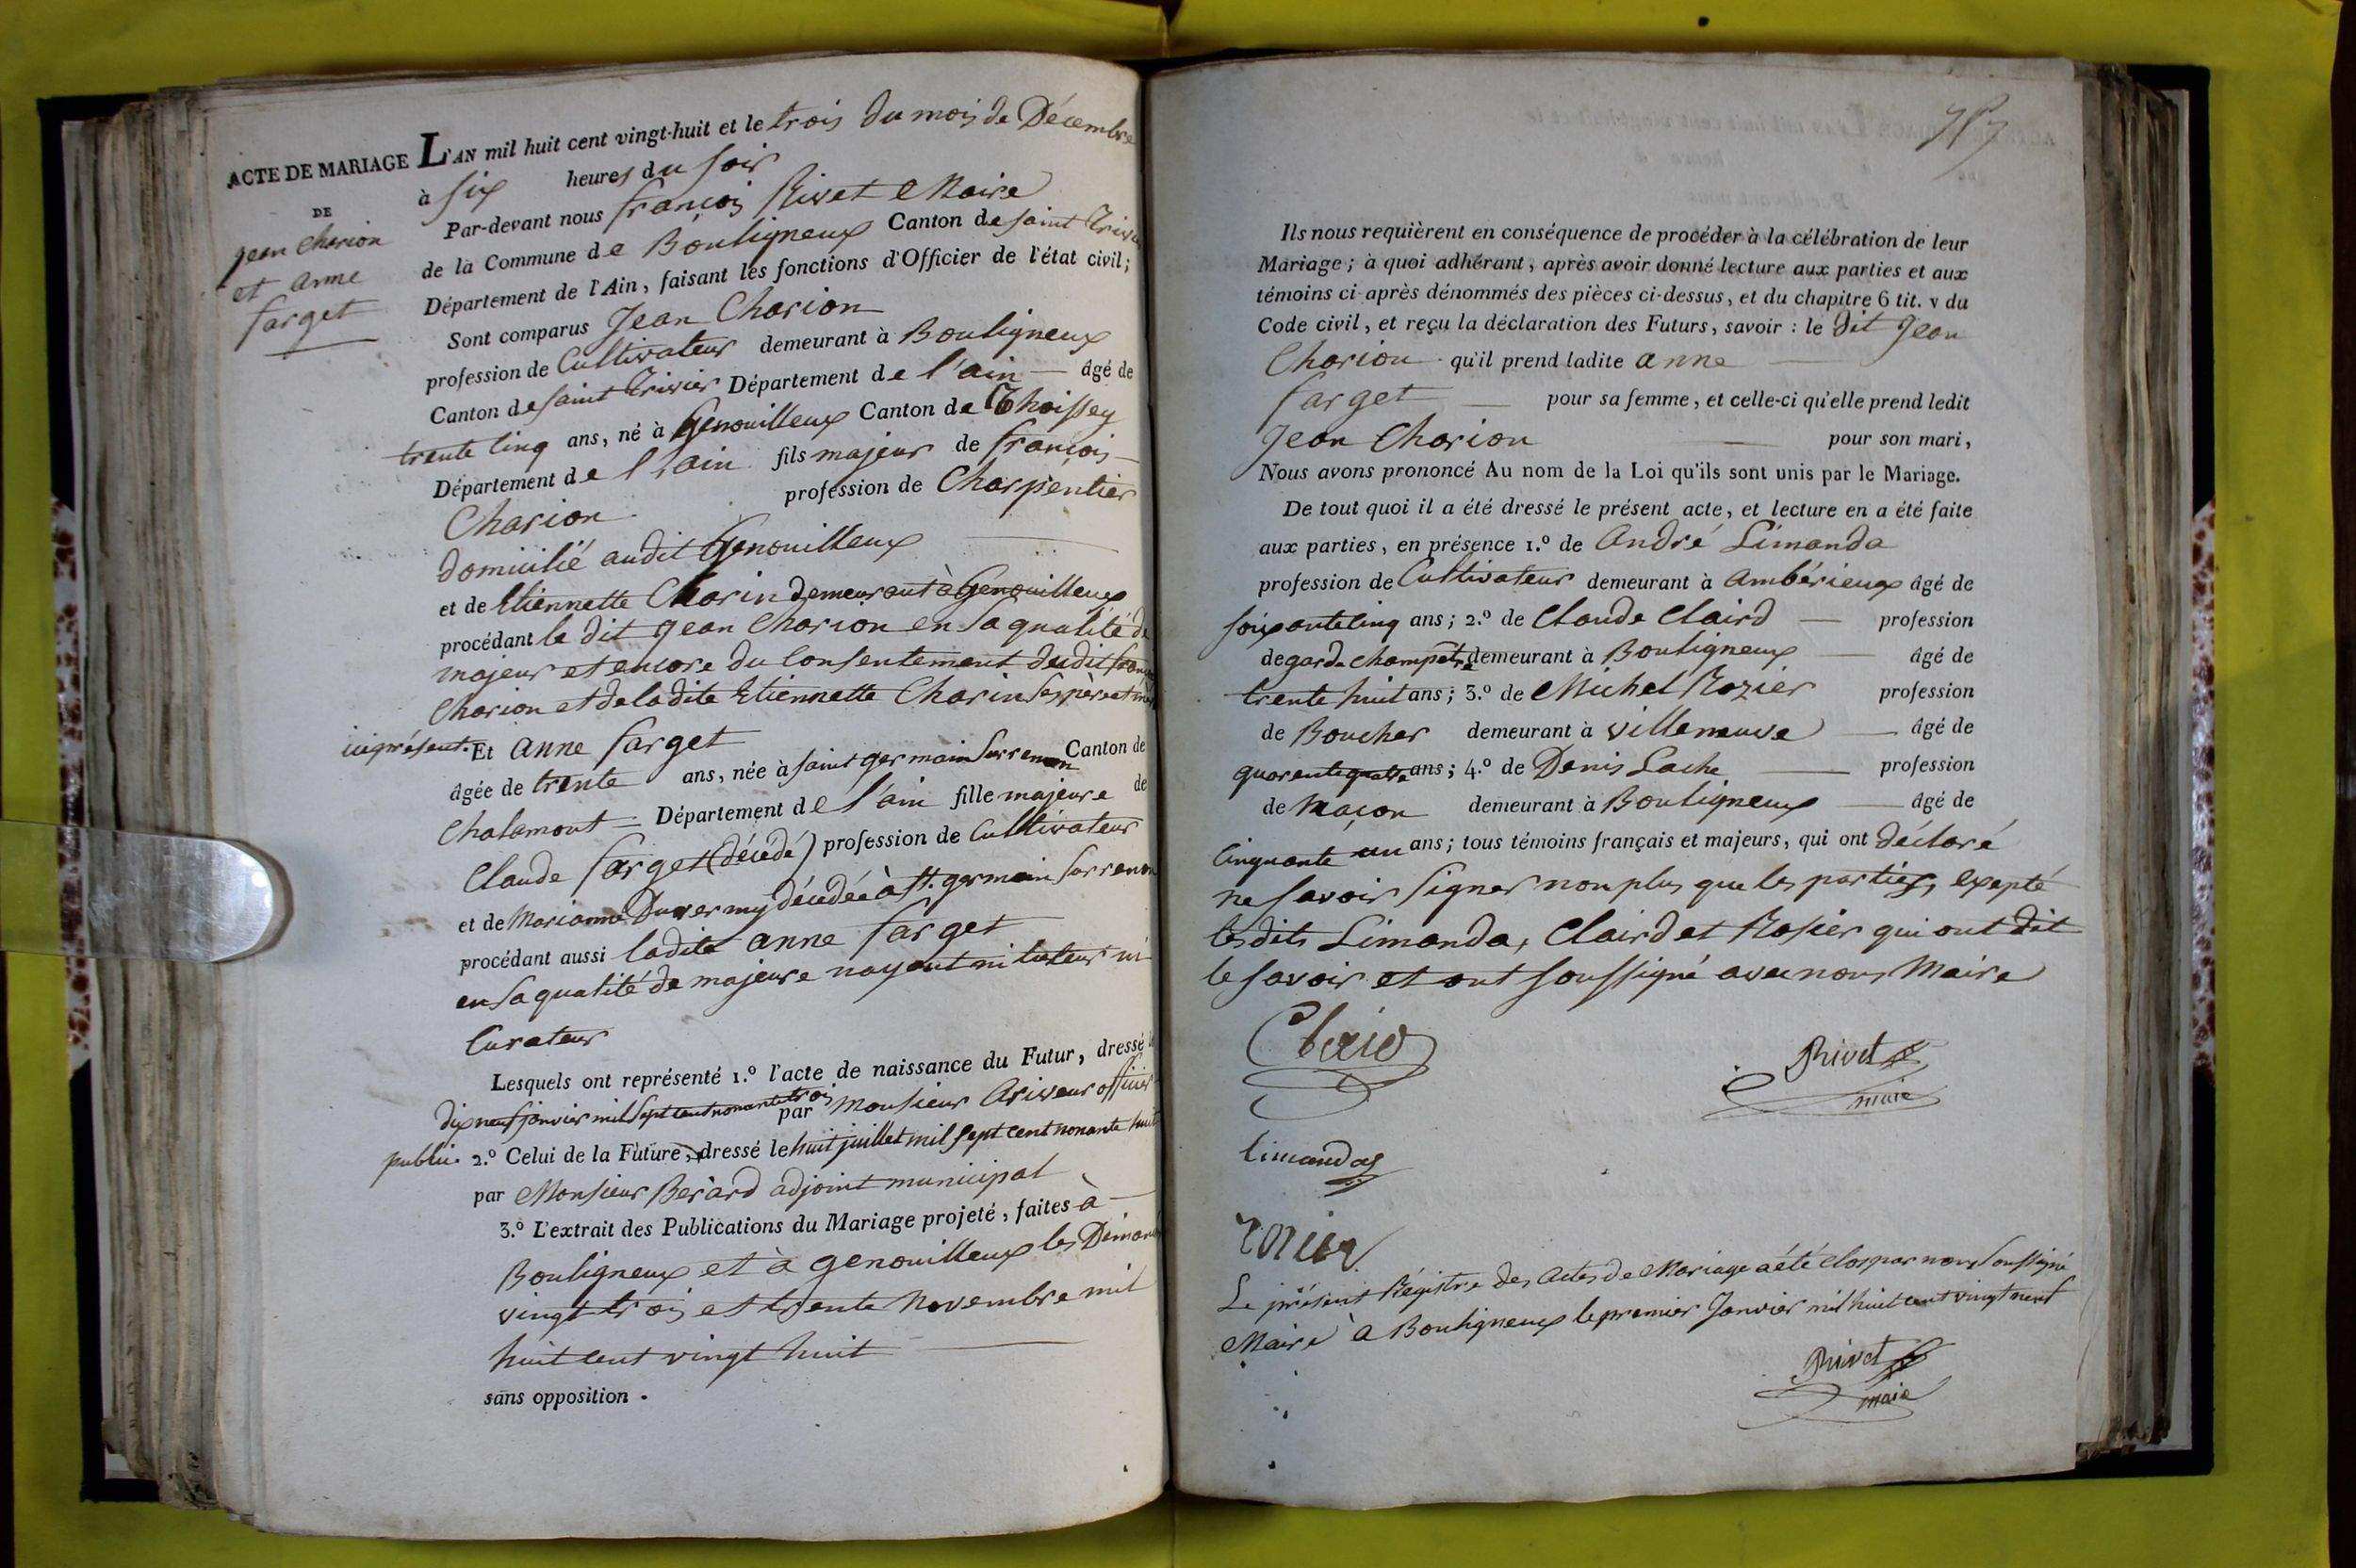 ACTE DE MARIAGE
DE
jean Charion
et anne
farget
L'AN mil huit cent vingt-huit et le trois du mois de Décembre
à six heures du soir
Par-devant nous françois Rivet Maire
de la Commune de Bouligneux Canton de saint Trivier
Département de l'Ain, faisant les fonctions d'Officier de l'état civil;
Sont comparus Jean Charion
profession de Cultivateur demeurant à Bouligneux
Canton de saint Trivier Département de l'ain âgé de
trente cinq ans, né à Genouilleux Canton de Thoissey
Département de l'ain fils majeur de françois
Charion profession de Charpentier
domicilié audit Genouilleux
et de Etiennette Charin demeurant à Genouilleux
procédant le dit jean Charion en sa qualité de
majeur et encore du Consentement dudit
Charion et de la dite Etiennette Charin ses père et
ici présent. Et anne farget
âgée de trente ans, née à saint germain Sur renon Canton de
Chalamont Département de l'ain fille majeure de
Claude farget (décédé) profession de Cultivateur
et de Marianne Duvermy décédée à St. germain sur renon
procédant aussi ladite anne farget
en sa qualité de majeure n'ayant ni tuteur ni
Curateur
Lesquels ont représenté 1.º l'acte de naissance du Futur, dressé le
dix neuf janvier mil sept cent nonante trois par Monsieur officier
public. 2.º Celui de la Future, dressé le huit juillet mil sept cent nonante huit
par Monsieur Berard adjoint municipal
3.º L'extrait des Publications du Mariage projeté, faites à
Bouligneux et à genouilleux les
vingt trois et trente Novembre mil
huit cent vingt huit
sans opposition.
Ils nous requièrent en conséquence de procéder à la célébration de leur
Mariage; à quoi adhérant, après avoir donné lecture aux parties et aux
témoins ci-après dénommés des pièces ci-dessus, et du chapitre 6 tit. v du
Code civil, et reçu la déclaration des Futurs, savoir : le dit Jean
Charion qu'il prend ladite anne
farget pour sa femme, et celle-ci qu'elle prend ledit
Jean Charion pour son mari,
Nous avons prononcé Au nom de la Loi qu'ils sont unis par le Mariage.
De tout quoi il a été dressé le présent acte, et lecture en a été faite
aux parties, en présence 1.º de André Limanda
profession de Cultivateur demeurant à ambérieux âgé de
soixante cinq ans; 2.º de Claude Claird profession
de garde champêtre demeurant à Bouligneux âgé de
trente huit ans; 3.º de Michel Rozier profession
de Boucher demeurant à villeneuve âgé de
quarente quatre ans; 4.º de Denis Lache profession
de Maçon demeurant à Bouligneux âgé de
Cinquante un ans; tous témoins français et majeurs, qui ont déclaré
ne savoir signer non plus que les parties, exepté
les dits Limanda, Claird et Rosier qui ont dit
le savoir et ont soussigné avec nous Maire
Rivet
maire
limandas
Le présent Régistre des Actes de Mariage a été Clos par nous soussigné
Maire à Bouligneux le premier Janvier mil huit cent vingt neuf
Rivet
maire